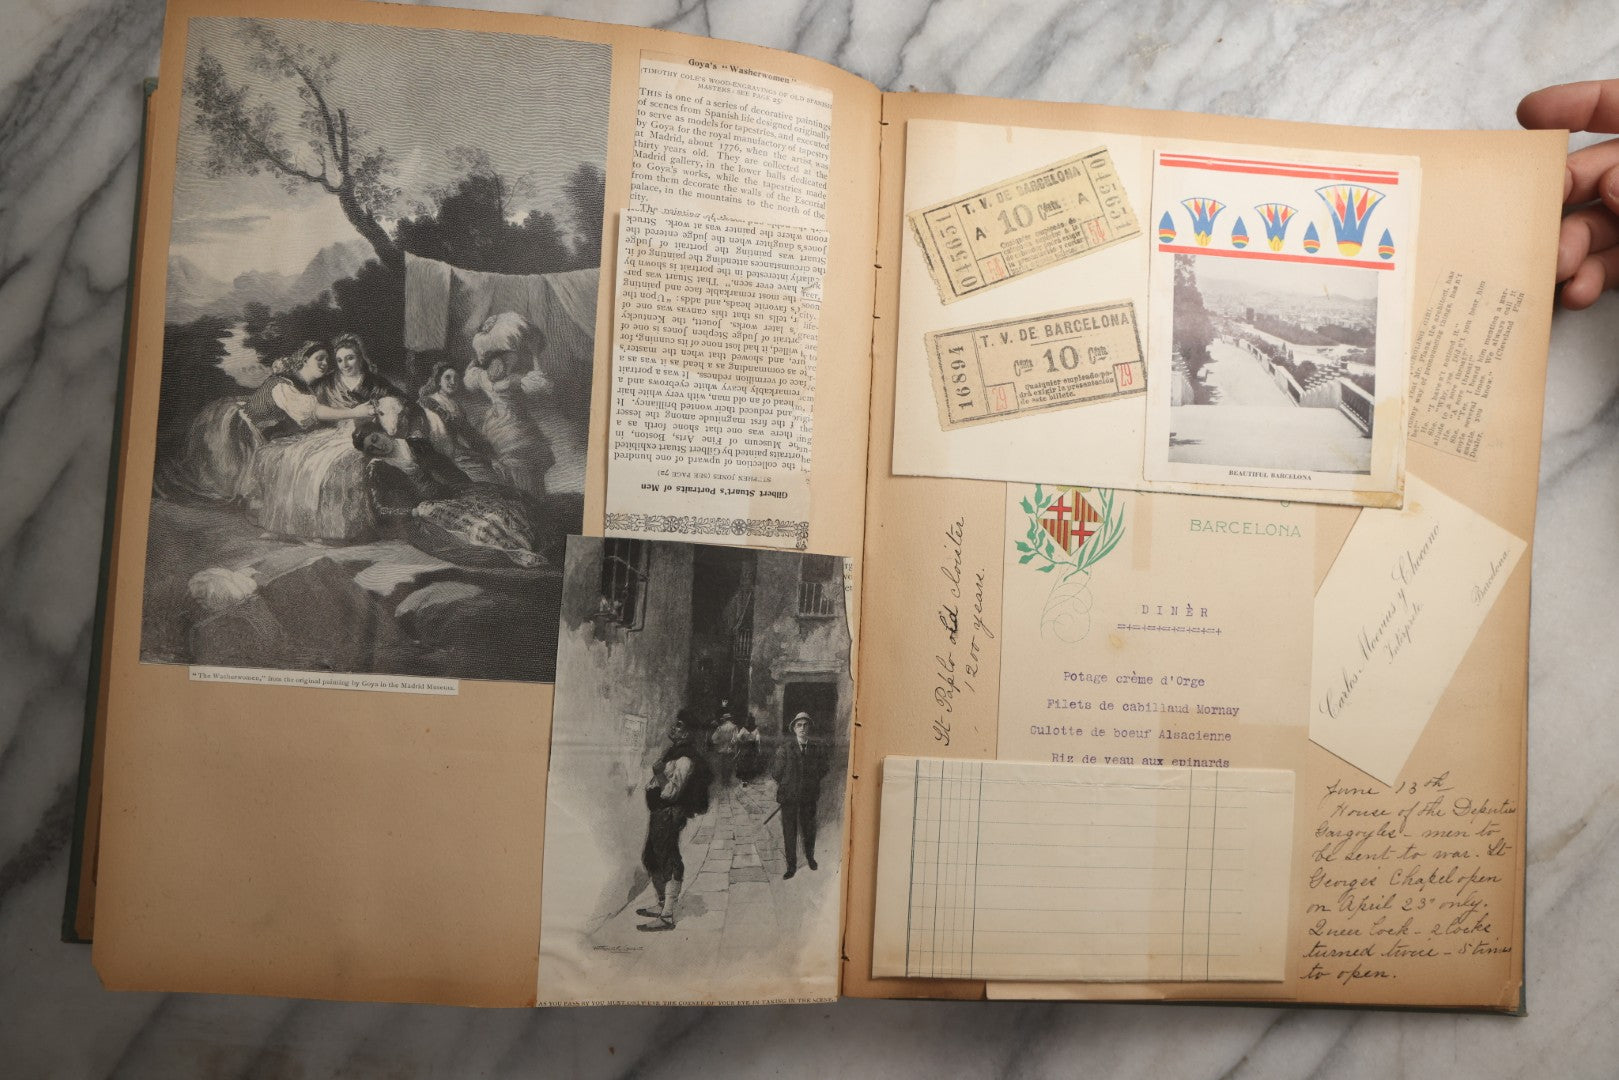 Goya's "Washerwomen"
(TIMOTHY COLE'S WOOD-ENGRAVINGS OF OLD SPANISH
MASTERS: SEE PAGE 25)
THIS is one of a series of decorative paintings
of scenes from Spanish life designed originally
to serve as models for tapestries, and executed
by Goya for the royal manufactory of tapestry
at Madrid, about 1776, when the artist was
thirty years old. They are collected at the
Madrid gallery, in the lower halls dedicated
to Goya's works, while the tapestries made
from them decorate the walls of the Escurial
palace, in the mountains to the north of the
city.
Gilbert Stuart's Portraits of Men
STEPHEN JONES (SEE PAGE 72)
the collection of upward of one hundred
portraits painted by Gilbert Stuart exhibited
Museum of Fine Arts, Boston, in
there was one that shone forth as a
the first magnitude among the lesser
and reduced their wonted brilliancy. It
head of an old man, with very white hair
remarkably heavy white eyebrows and a
face of vermilion redness. It was a portrait
as commanding as a head as it was as a
and showed that when the master's
willed, it had lost none of its cunning, for
portrait of Judge Stephen Jones is one of
later works. Jouett, the Kentucky
tells us that this canvas was one of
favorite heads, and adds: "Upon the
the most remarkable face and painting
have ever seen." That Stuart was par-
interested in the portrait is shown by
the circumstances attending the painting of it
Stuart was painting the portrait of Judge
Jones's daughter when the judge entered the
room where the painter was at work. Struck
"The Washerwomen," from the original painting by Goya in the Madrid Museum.
AS YOU PASS BY YOU MUST ONLY LET THE CORNER OF YOUR EYE IN TAKING IN THE SCENE.
015651
T. V. DE BARCELONA
A 10 Cén. A
54
54
01640
T. V. DE BARCELONA
16894
Cén 10 Cén
29
Cualquier empleado po-
drá exigir la presentación
de este billete.
29
BEAUTIFUL BARCELONA
BARCELONA
DINÈR
=+=+=+=+=+=+=+
Potage crème d'Orge
Filets de cabillaud Mornay
Culotte de boeuf Alsacienne
Riz de veau aux epinards
St Paplo old cloister
1200 years.
Carlos Morenus y Chocano
Intérprete
Barcelona
June 13th
House of the Deputies
Gargoyles - men to
be sent to war. St
Georges Chapel open
on April 23d only.
Queer lock - 2 locks
turned twice - 5 times
to open.